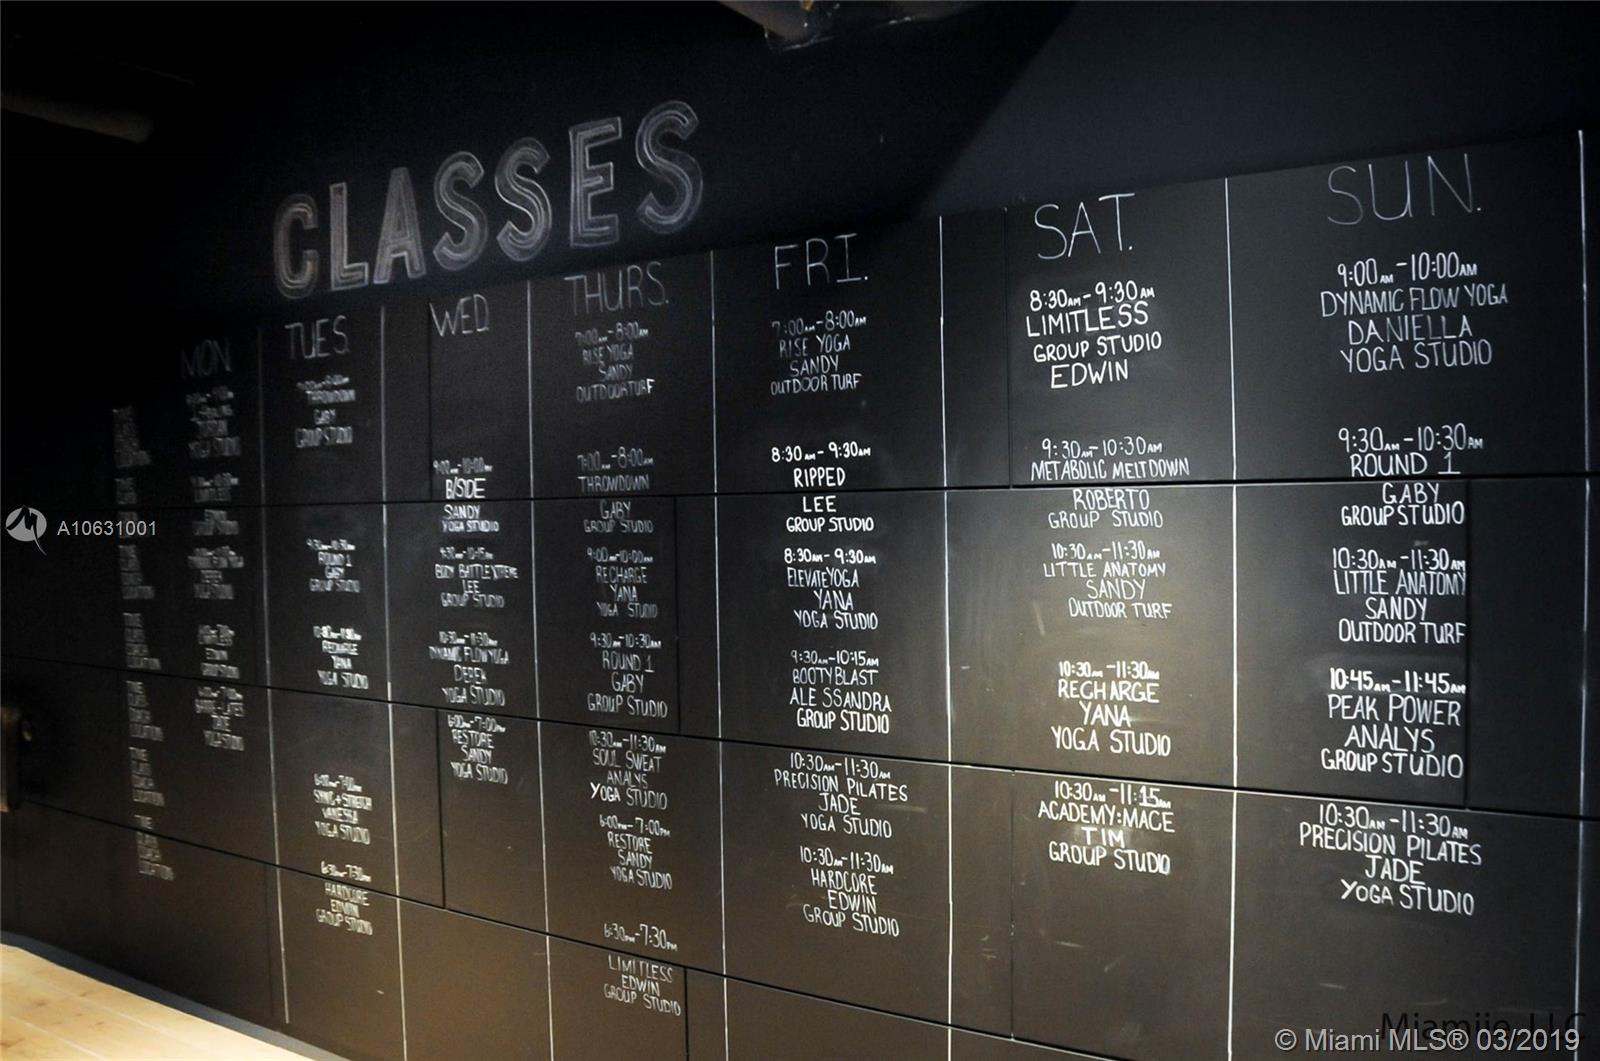 CLASSES
MON
TIME
CLASS
COACH
LOCATION
YOGA STUDIO
TIME
CLASS
EDWIN
GROUP STUDIO
TIME
CLASS
COACH
LOCATION
DEREK
YOGA STUDIO
TIME
CLASS
COACH
LOCATION
EDWIN
GROUP STUDIO
TIME
CLASS
COACH
LOCATION
YOGA STUDIO
TIME
CLASS
COACH
LOCATION
TIME
CLASS
COACH
LOCATION
TUES.
THROWDOWN
GABY
GROUP STUDIO
9:30AM-10:30AM
ROUND 1
GABY
GROUP STUDIO
RECHARGE
YANA
YOGA STUDIO
6:00PM-7:00PM
SYNC+STRETCH
VANESSA
YOGA STUDIO
6:30PM-7:30PM
HARDCORE
EDWIN
GROUP STUDIO
WED.
9:00AM-10:00AM
B/SIDE
SANDY
YOGA STUDIO
9:30AM-10:15AM
BODY BATTLE XTREME
LEE
GROUP STUDIO
10:30AM-11:30AM
DYNAMIC FLOW YOGA
DEREK
YOGA STUDIO
6:00PM-7:00PM
RESTORE
SANDY
YOGA STUDIO
THURS.
7:00AM-8:00AM
RISE YOGA
SANDY
OUTDOOR TURF
7:00AM-8:00AM
THROWDOWN
GABY
GROUP STUDIO
9:00AM-10:00AM
RECHARGE
YANA
YOGA STUDIO
9:30AM-10:30AM
ROUND 1
GABY
GROUP STUDIO
10:30AM-11:30AM
SOUL SWEAT
ANALYS
YOGA STUDIO
6:00PM-7:00PM
RESTORE
SANDY
YOGA STUDIO
6:30PM-7:30PM
LIMITLESS
EDWIN
GROUP STUDIO
FRI.
7:00AM-8:00AM
RISE YOGA
SANDY
OUTDOOR TURF
8:30AM-9:30AM
RIPPED
LEE
GROUP STUDIO
8:30AM-9:30AM
ELEVATE YOGA
YANA
YOGA STUDIO
9:30AM-10:15AM
BOOTY BLAST
ALESSANDRA
GROUP STUDIO
10:30AM-11:30AM
PRECISION PILATES
JADE
YOGA STUDIO
10:30AM-11:30AM
HARDCORE
EDWIN
GROUP STUDIO
SAT.
8:30AM-9:30AM
LIMITLESS
GROUP STUDIO
EDWIN
9:30AM-10:30AM
METABOLIC MELTDOWN
ROBERTO
GROUP STUDIO
10:30AM-11:30AM
LITTLE ANATOMY
SANDY
OUTDOOR TURF
10:30AM-11:30AM
RECHARGE
YANA
YOGA STUDIO
10:30AM-11:15AM
ACADEMY:MACE
TIM
GROUP STUDIO
SUN.
9:00AM-10:00AM
DYNAMIC FLOW YOGA
DANIELLA
YOGA STUDIO
9:30AM-10:30AM
ROUND 1
GABY
GROUP STUDIO
10:30AM-11:30AM
LITTLE ANATOMY
SANDY
OUTDOOR TURF
10:45AM-11:45AM
PEAK POWER
ANALYS
GROUP STUDIO
10:30AM-11:30AM
PRECISION PILATES
JADE
YOGA STUDIO
A10631001
Miamiio LLC
© Miami MLS® 03/2019